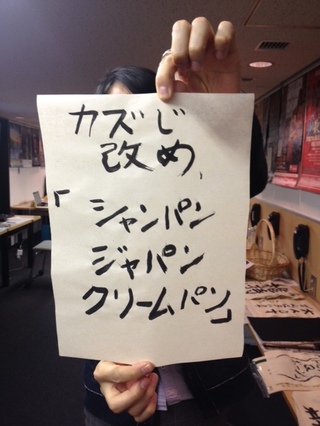 カズじ
改め、
「シャンパン
ジャパン
クリームパン」